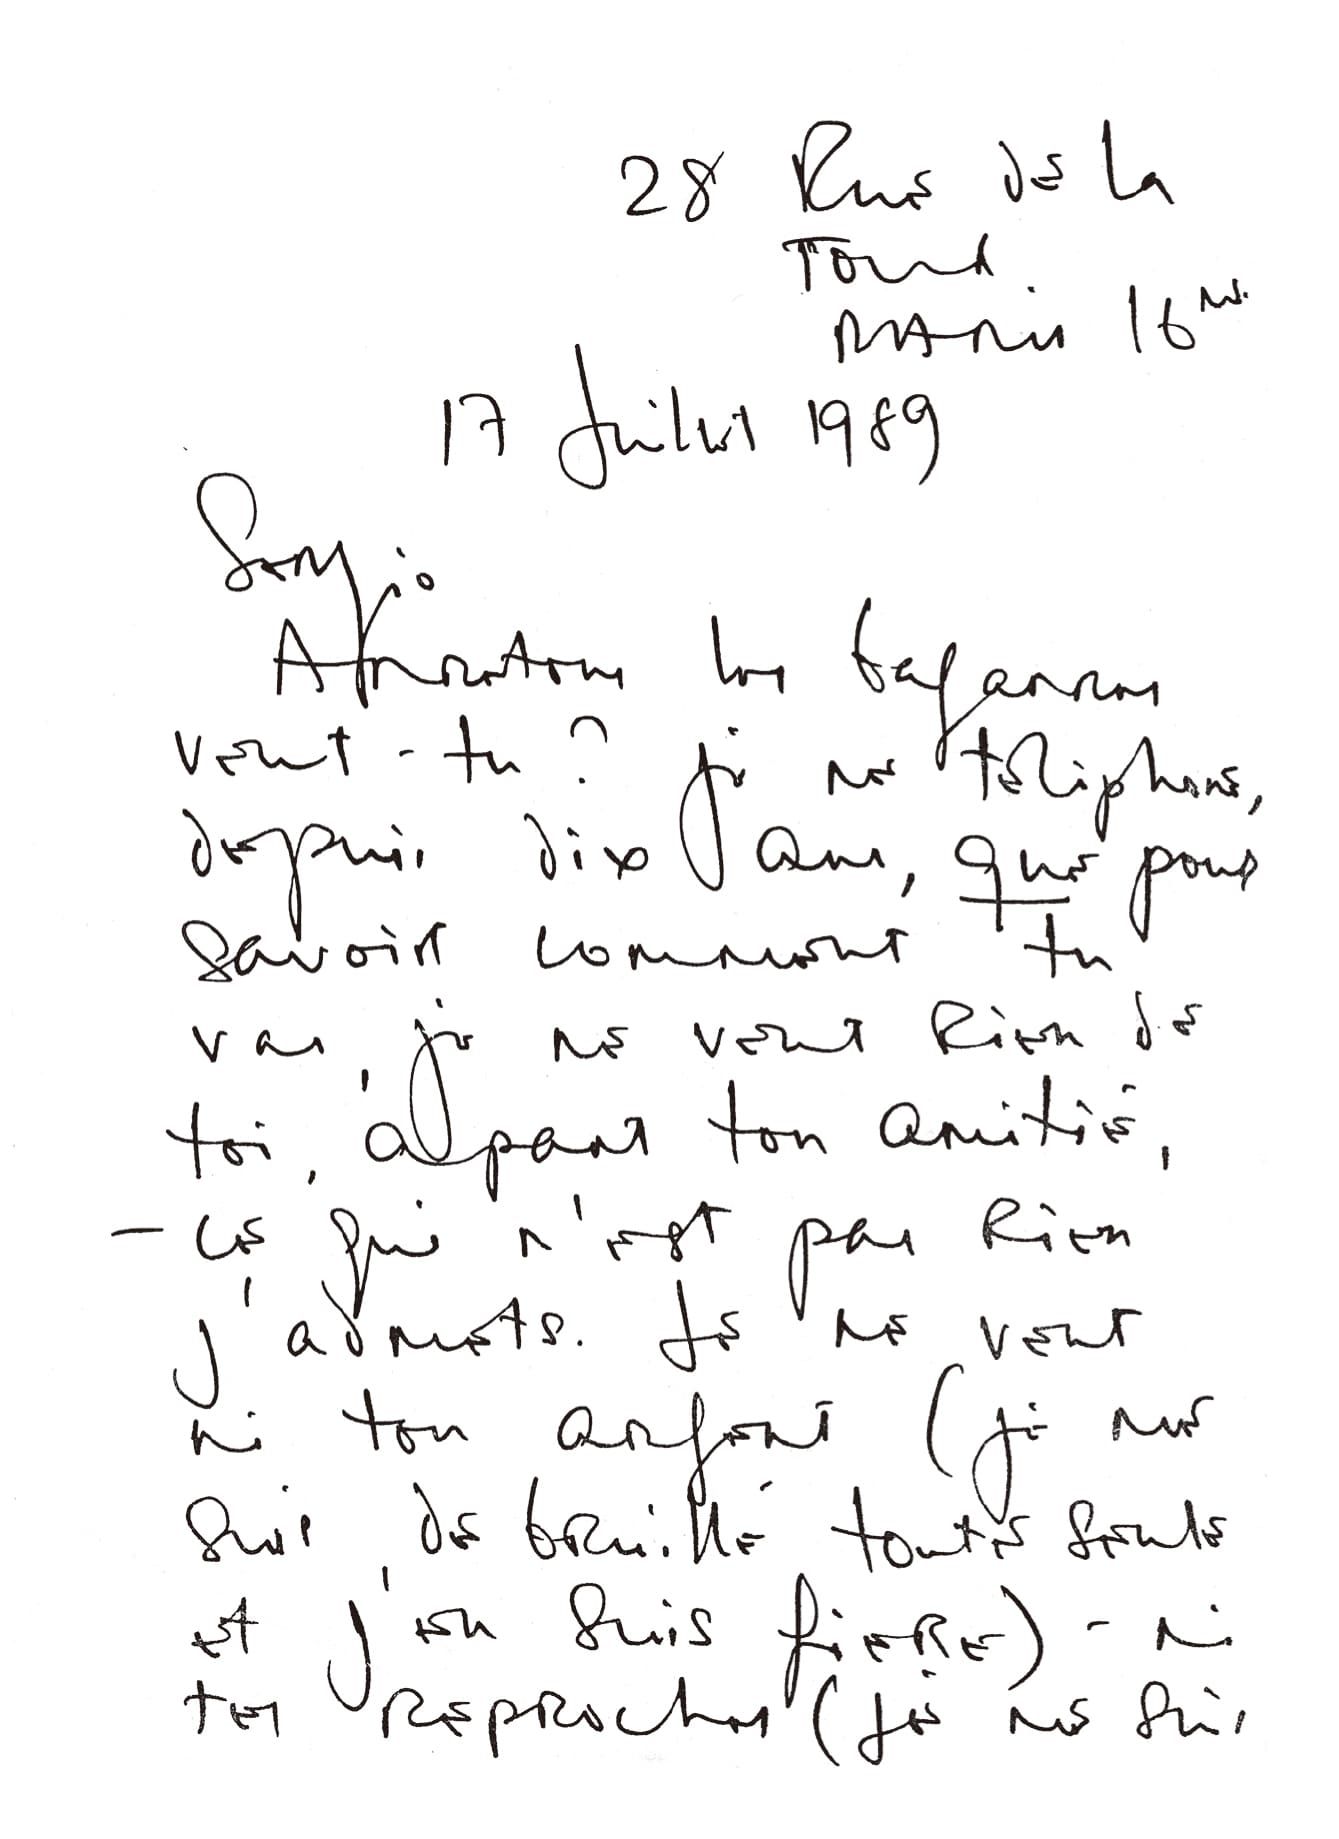 28 Rue de la
Tour
PARis 16me.
17 Juillet 1989
Sergio
Arretons les bagarres
veut-tu? je ne téléphone,
depuis dix ans, que pour
savoir comment tu
vas, je ne veut Rien de
toi, apart ton amitié,
- ce qui n'est pas Rien
j'admets. Je ne veut
ni ton argent (je me
suis débrouillé toute seule
et j'en suis fiERE) - ni
tes REPRoches (je me suis